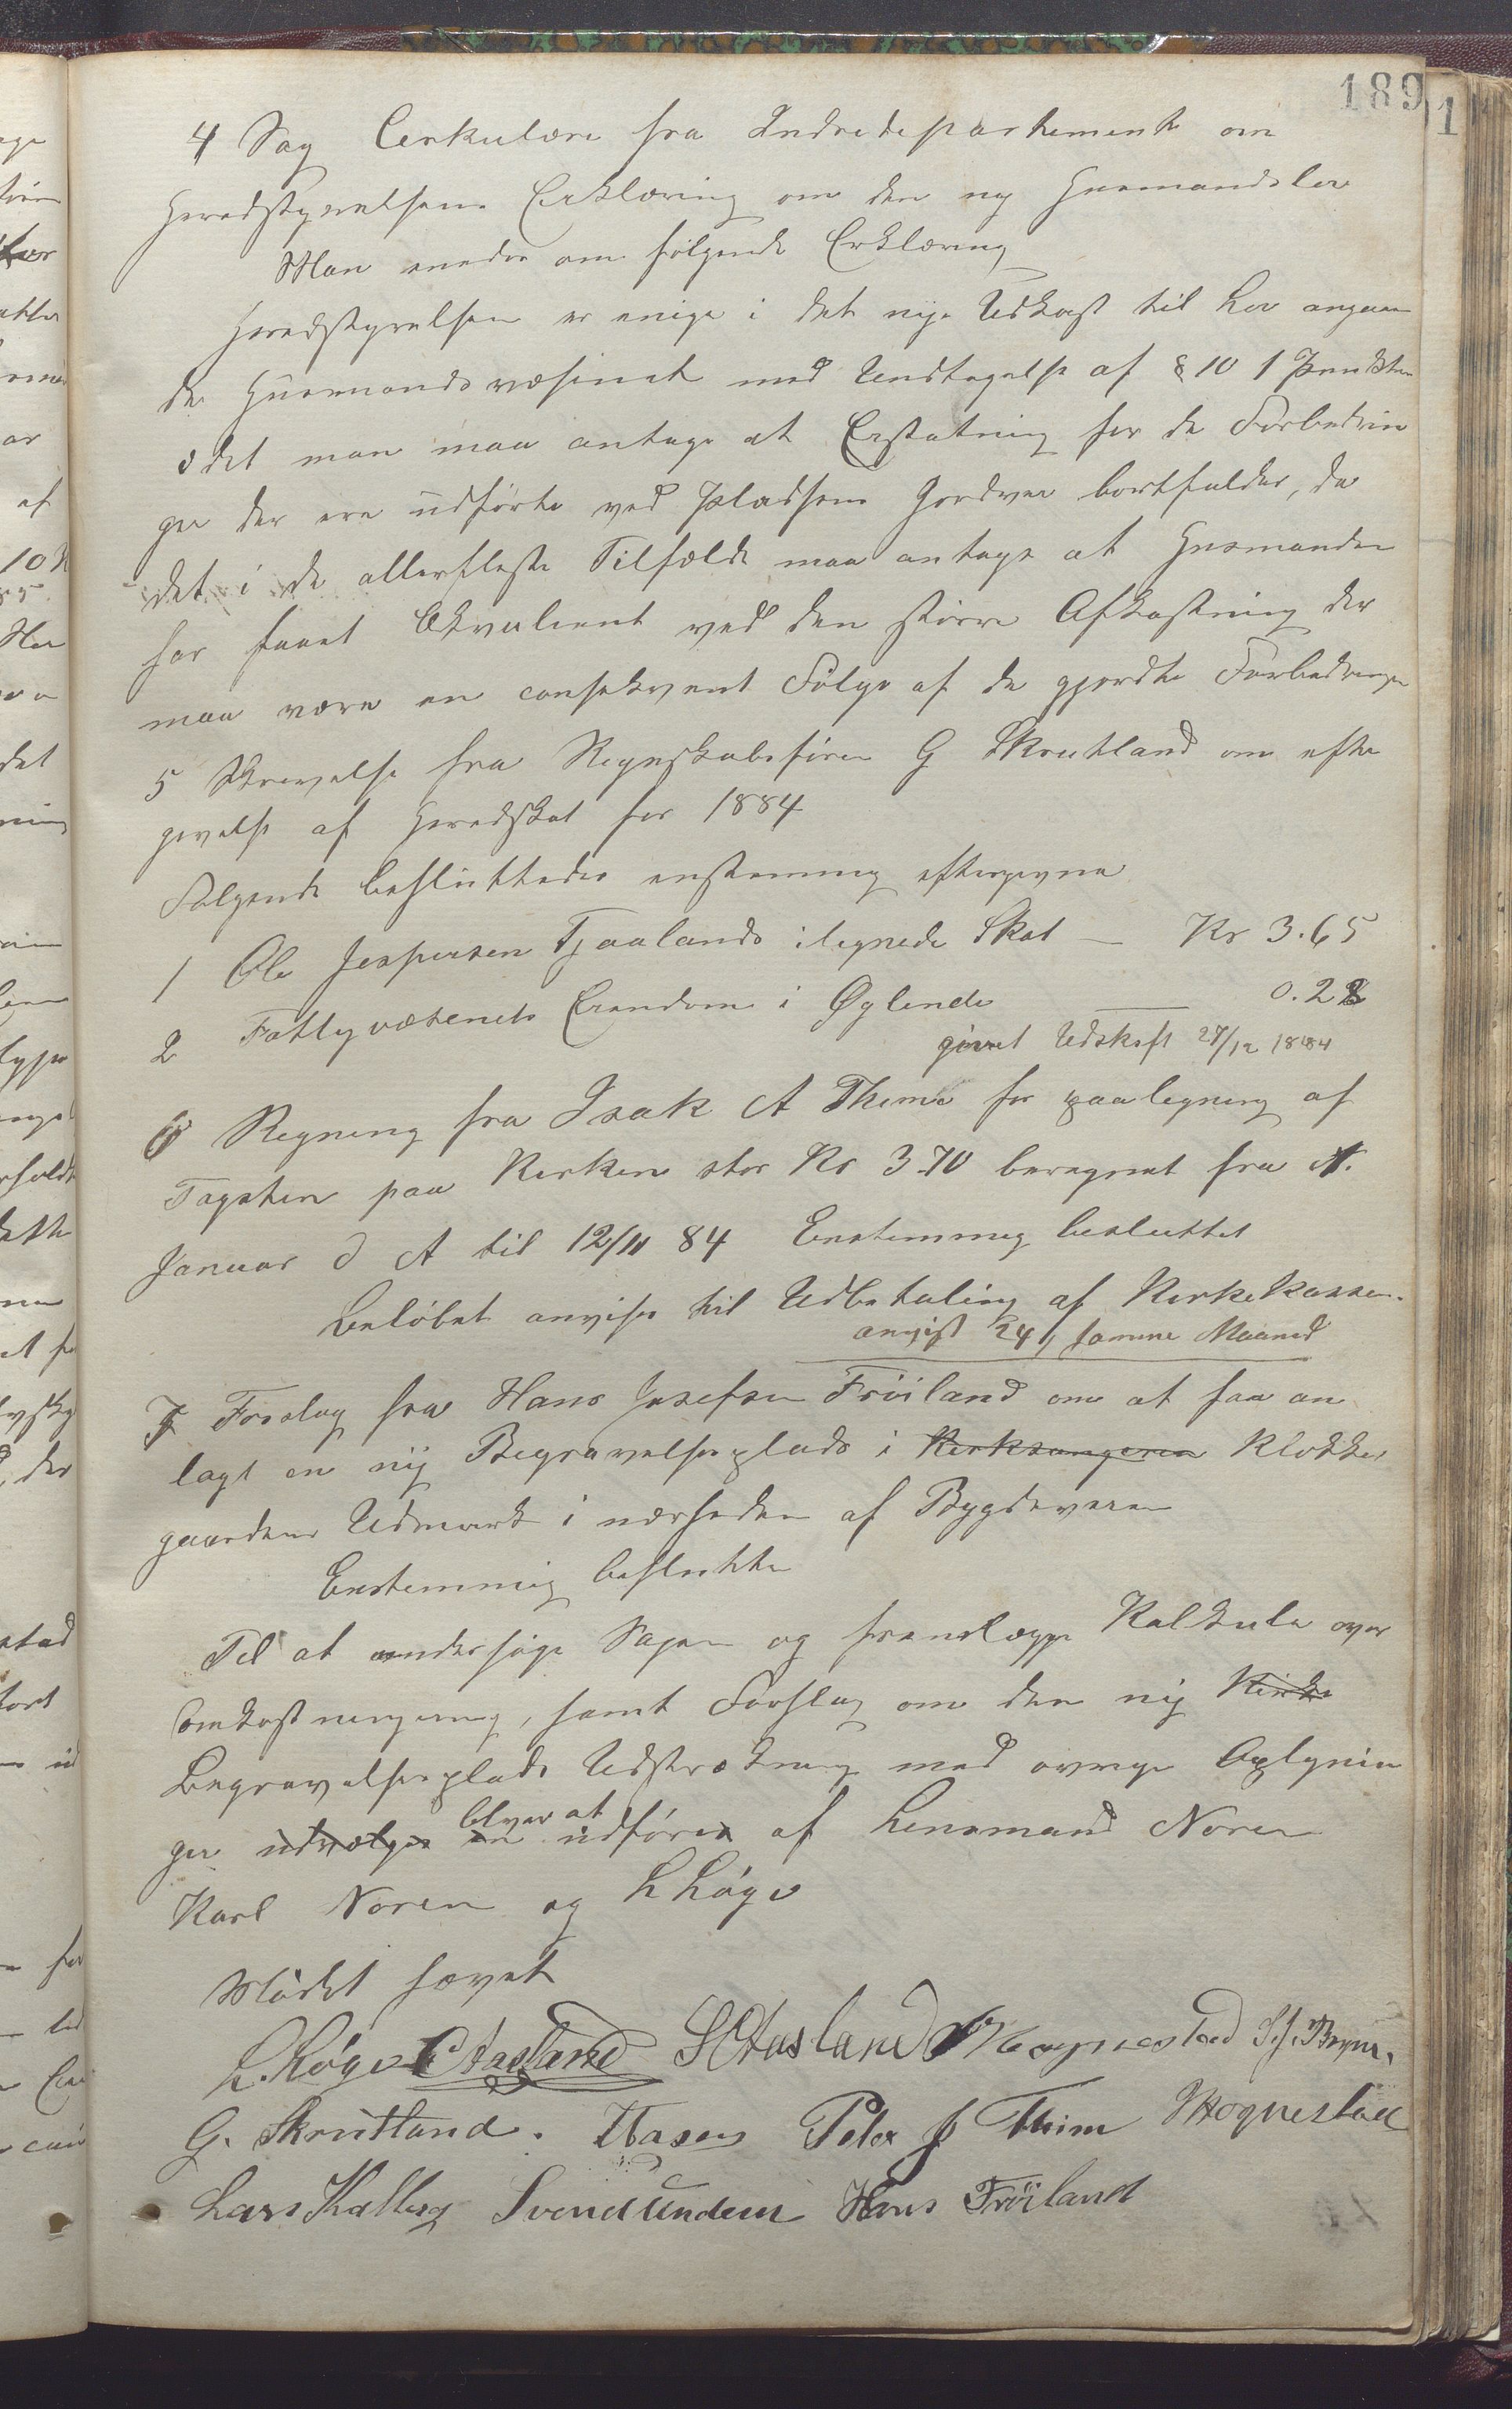 189
4 Sag Cerkulære fra Indredepartement om
Heredstyrelsens Erklæring om den ny Husmandslov
Man enedes om følgende Erklæring
Heredstyrelsen er enige i det nye Udkast til Lov angaaen
de Husmandsvæsenet med Undtagelse af § 10 1 Punktum
idet man maa antage at Erstatning for de Forbedrin
ger der ere udførte ved Pladsens Jordvei bortfalder, da
det i de allerfleste Tilfælde maa antages at Husmanden
har faaet Ekvalient ved den større Afkastning der
maa være en consekvent Følge af de gjordte Forbedringer
5 Skrivelse fra Regnskabsfører G Skrutland om efter
givelse af Heredskat for 1884
Følgende besluttedes enstemmig eftergivne
1 Ole Jespersen Tjaalands ilignede Skat — Kr 3.65
2 Fattigvæsenets Eiendom i Øglende 0.28
givet Udskrift 27/12 1884
6 Regning fra Isak A Thime for paalegning af
Tagsten paa Kirken stor Kr 3.70 beregnet fra 1.
Januar d A til 12/11 84 Enstemmig besluttet
Beløbet anvises til Udbetaling af Kirkekassen.
anvist 24, samme Maaned
7 Forslag fra Hans Josefsen Frøiland om at faa an
lagt en ny Begravelsesplads i Kirksangeren Klokker
gaardens Udmark i nærheden af Bygdeveien
Enstemmig besluttet
Til at undersøge Sagen og fremlægge Kalkule over
Omkostningerne, samt Forslag om den ny Kirke
Begravelsesplads Udstrækning med øvrige Oplysnin
ger udvælges en blver at udføres af Lensmand Noren
Karl Noren og L Løge
Mødet hævet
L. Løge Aasland S Aasland Haagnestad S. J. Bryne.
G. Skrutland. Peter J Thime Hognestad
Lars Kalberg Svend Undem Hans Frøiland